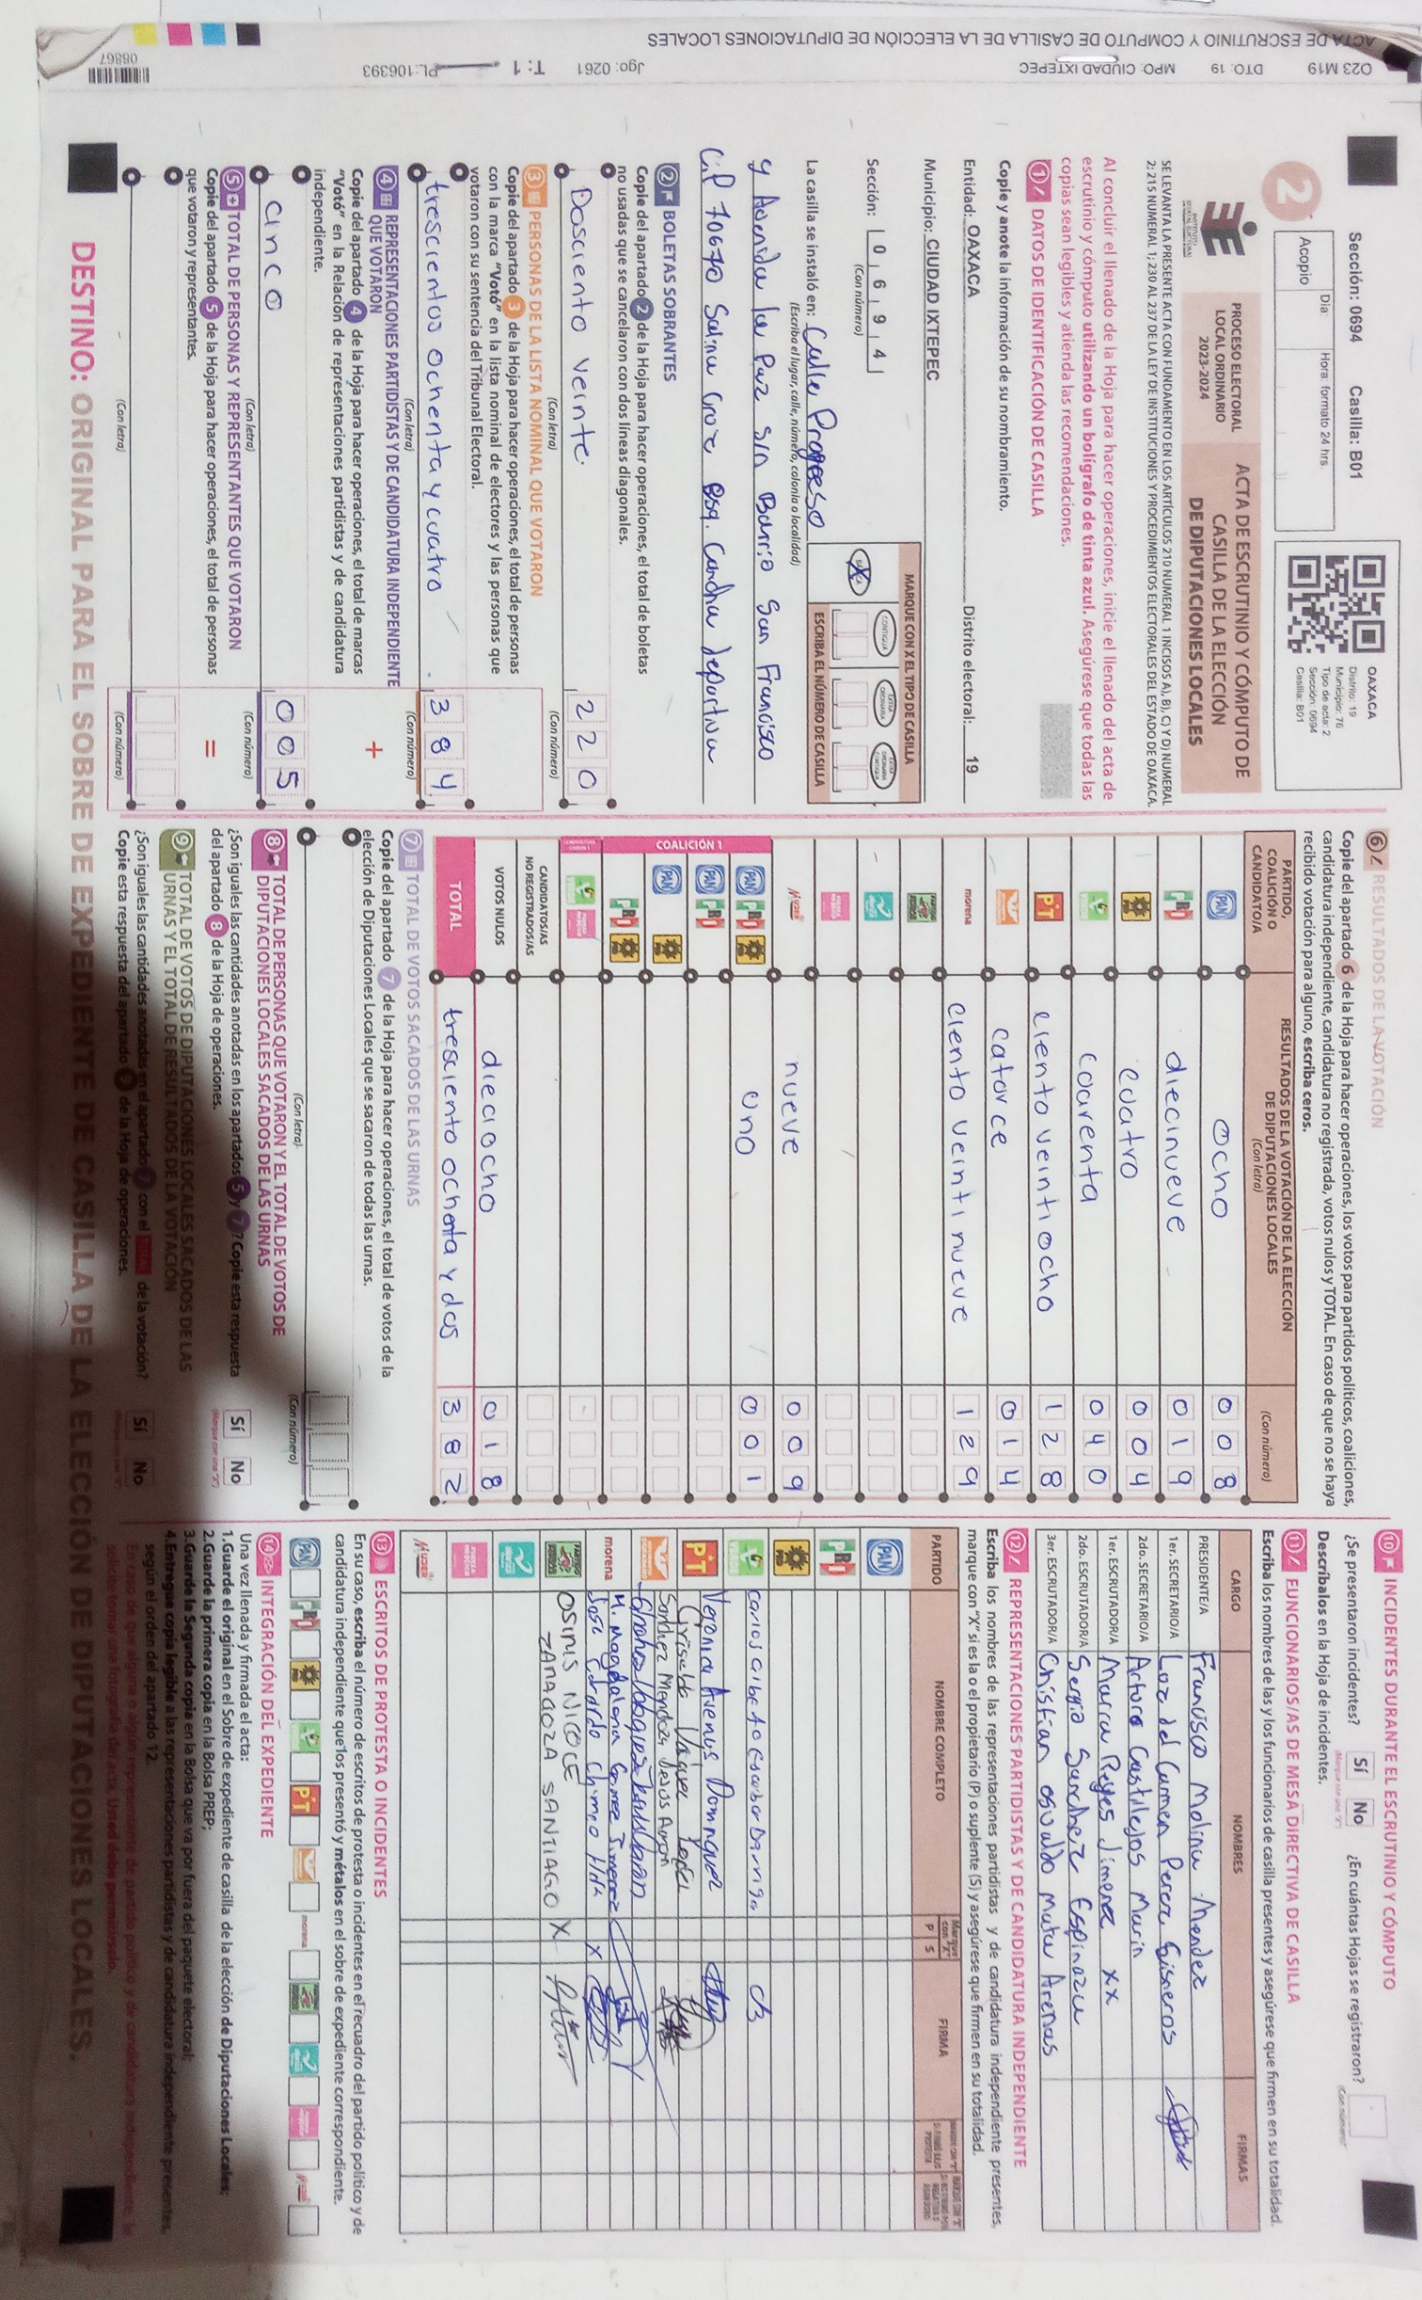 Sección: 0694 Casilla: B01
2
Día: Hora: formato 24 hrs
Acopio
OAXACA
Distrito: 19
Municipio: 76
Tipo de acta: 2
Sección: 0694
Casilla: B01
PROCESO ELECTORAL
LOCAL ORDINARIO
2023-2024
ACTA DE ESCRUTINIO Y CÓMPUTO DE
CASILLA DE LA ELECCIÓN
DE DIPUTACIONES LOCALES
SE LEVANTA LA PRESENTE ACTA CON FUNDAMENTO EN LOS ARTÍCULOS 210 NUMERAL 1 INCISOS A), B), C) Y D) NUMERAL
2; 215 NUMERAL 1; 230 AL 237 DE LA LEY DE INSTITUCIONES Y PROCEDIMIENTOS ELECTORALES DEL ESTADO DE OAXACA.
Al concluir el llenado de la Hoja para hacer operaciones, inicie el llenado del acta de
escrutinio y cómputo utilizando un bolígrafo de tinta azul. Asegúrese que todas las
copias sean legibles y atienda las recomendaciones.
1 DATOS DE IDENTIFICACIÓN DE CASILLA
Copie y anote la información de su nombramiento.
Entidad: OAXACA Distrito electoral: 19
Municipio: CIUDAD IXTEPEC
Sección: 0 6 9 4
(Con número)
MARQUE CON X EL TIPO DE CASILLA
X
CONTIGUA
ESCRIBA EL NÚMERO DE CASILLA
La casilla se instaló en: Calle Progreso
(Escriba el lugar, calle, número, colonia o localidad)
y Avenida la Paz S/n Barrio San Francisco
C.P 70670 Salina Cruz esq. Cancha deportiva
2 BOLETAS SOBRANTES
Copie del apartado 2 de la Hoja para hacer operaciones, el total de boletas
no usadas que se cancelaron con dos líneas diagonales.
Dosciento veinte. 2 2 0
(Con letra) (Con número)
3 PERSONAS DE LA LISTA NOMINAL QUE VOTARON
Copie del apartado 3 de la Hoja para hacer operaciones, el total de personas
con la marca "Votó" en la lista nominal de electores y las personas que
votaron con su sentencia del Tribunal Electoral.
trescientos ochenta y cuatro 3 8 4
(Con letra) (Con número)
4 REPRESENTACIONES PARTIDISTAS Y DE CANDIDATURA INDEPENDIENTE
QUE VOTARON
+
Copie del apartado 4 de la Hoja para hacer operaciones, el total de marcas
"Votó" en la Relación de representaciones partidistas y de candidatura
independiente.
cinco 0 0 5
(Con letra) (Con número)
5 TOTAL DE PERSONAS Y REPRESENTANTES QUE VOTARON
Copie del apartado 5 de la Hoja para hacer operaciones, el total de personas
que votaron y representantes.
=
(Con letra) (Con número)
6 RESULTADOS DE LA VOTACIÓN
Copie del apartado 6 de la Hoja para hacer operaciones, los votos para partidos políticos, coaliciones,
candidatura independiente, candidatura no registrada, votos nulos y TOTAL. En caso de que no se haya
recibido votación para alguno, escriba ceros.
PARTIDO,
COALICIÓN O
CANDIDATO/A
RESULTADOS DE LA VOTACIÓN DE LA ELECCIÓN
DE DIPUTACIONES LOCALES
(Con letra) (Con número)
PAN ocho 0 0 8
PRI diecinueve 0 1 9
PRD cuatro 0 0 4
VERDE coarenta 0 4 0
PT ciento veintiocho 1 2 8
catorce 0 1 4
morena ciento veintinueve 1 2 9
nueve 0 0 9
COALICIÓN 1
PAN PRI PRD uno 0 0 1
PAN PRI
PAN PRD
PRI PRD
CANDIDATOS/AS
NO REGISTRADOS/AS
VOTOS NULOS dieciocho 0 1 8
TOTAL tresciento ochenta y dos 3 8 2
7 TOTAL DE VOTOS SACADOS DE LAS URNAS
Copie del apartado 7 de la Hoja para hacer operaciones, el total de votos de la
elección de Diputaciones Locales que se sacaron de todas las urnas.
(Con letra) (Con número)
8 TOTAL DE PERSONAS QUE VOTARON Y EL TOTAL DE VOTOS DE
DIPUTACIONES LOCALES SACADOS DE LAS URNAS
¿Son iguales las cantidades anotadas en los apartados 5 y 7? Copie esta respuesta
del apartado 8 de la Hoja de operaciones.
Sí No
9 TOTAL DE VOTOS DE DIPUTACIONES LOCALES SACADOS DE LAS
URNAS Y EL TOTAL DE RESULTADOS DE LA VOTACIÓN
¿Son iguales las cantidades anotadas en el apartado 7 con el TOTAL de la votación?
Copie esta respuesta del apartado 9 de la Hoja de operaciones.
Sí No
10 INCIDENTES DURANTE EL ESCRUTINIO Y CÓMPUTO
¿Se presentaron incidentes? Sí No ¿En cuántas Hojas se registraron?
Descríbalos en la Hoja de incidentes.
11 FUNCIONARIOS/AS DE MESA DIRECTIVA DE CASILLA
Escriba los nombres de las y los funcionarios de casilla presentes y asegúrese que firmen en su totalidad.
CARGO NOMBRES FIRMAS
PRESIDENTE/A Francisco Molina Mendez
1er. SECRETARIO/A Luz del Carmen Perez Cisneros
2do. SECRETARIO/A Arturo Castillejos Marin
1er. ESCRUTADOR/A Marcu Reyes Jimenez XX
2do. ESCRUTADOR/A Sergio Sanchez Espinoza
3er. ESCRUTADOR/A Christian osvaldo matu Arenas
12 REPRESENTACIONES PARTIDISTAS Y DE CANDIDATURA INDEPENDIENTE
Escriba los nombres de las representaciones partidistas y de candidatura independiente presentes,
marque con "X" si es la o el propietario (P) o suplente (S) y asegúrese que firmen en su totalidad.
PARTIDO NOMBRE COMPLETO P S FIRMA
PAN
PRI
PRD
VERDE Carlos Albeto Escobar Barriga
PT Veronica Avenus Dominguez
Sanchez Mendez Jesus Aaron
morena M. Magdalena Gomez Jimenez
Jose Eduardo Chimo X
OSIRIS NICOLE X
ZARAGOZA SANTIAGO
13 ESCRITOS DE PROTESTA O INCIDENTES
En su caso, escriba el número de escritos de protesta o incidentes en el recuadro del partido político y de
candidatura independiente que los presentó y métalos en el sobre de expediente correspondiente.
PAN PRI PRD VERDE PT morena
14 INTEGRACIÓN DEL EXPEDIENTE
Una vez llenada y firmada el acta:
1.Guarde el original en el Sobre de expediente de casilla de la elección de Diputaciones Locales;
2.Guarde la primera copia en la Bolsa PREP;
3.Guarde la Segunda copia en la Bolsa que va por fuera del paquete electoral;
4.Entregue copia legible a las representaciones partidistas y de candidatura independiente presentes,
según el orden del apartado 12.
DESTINO: ORIGINAL PARA EL SOBRE DE EXPEDIENTE DE CASILLA DE LA ELECCIÓN DE DIPUTACIONES LOCALES.
ACTA DE ESCRUTINIO Y COMPUTO DE CASILLA DE LA ELECCIÓN DE DIPUTACIONES LOCALES
023 M19 DTO: 19 MPO: CIUDAD IXTEPEC Jgo: 0261 T: 1 PL:106393
06867